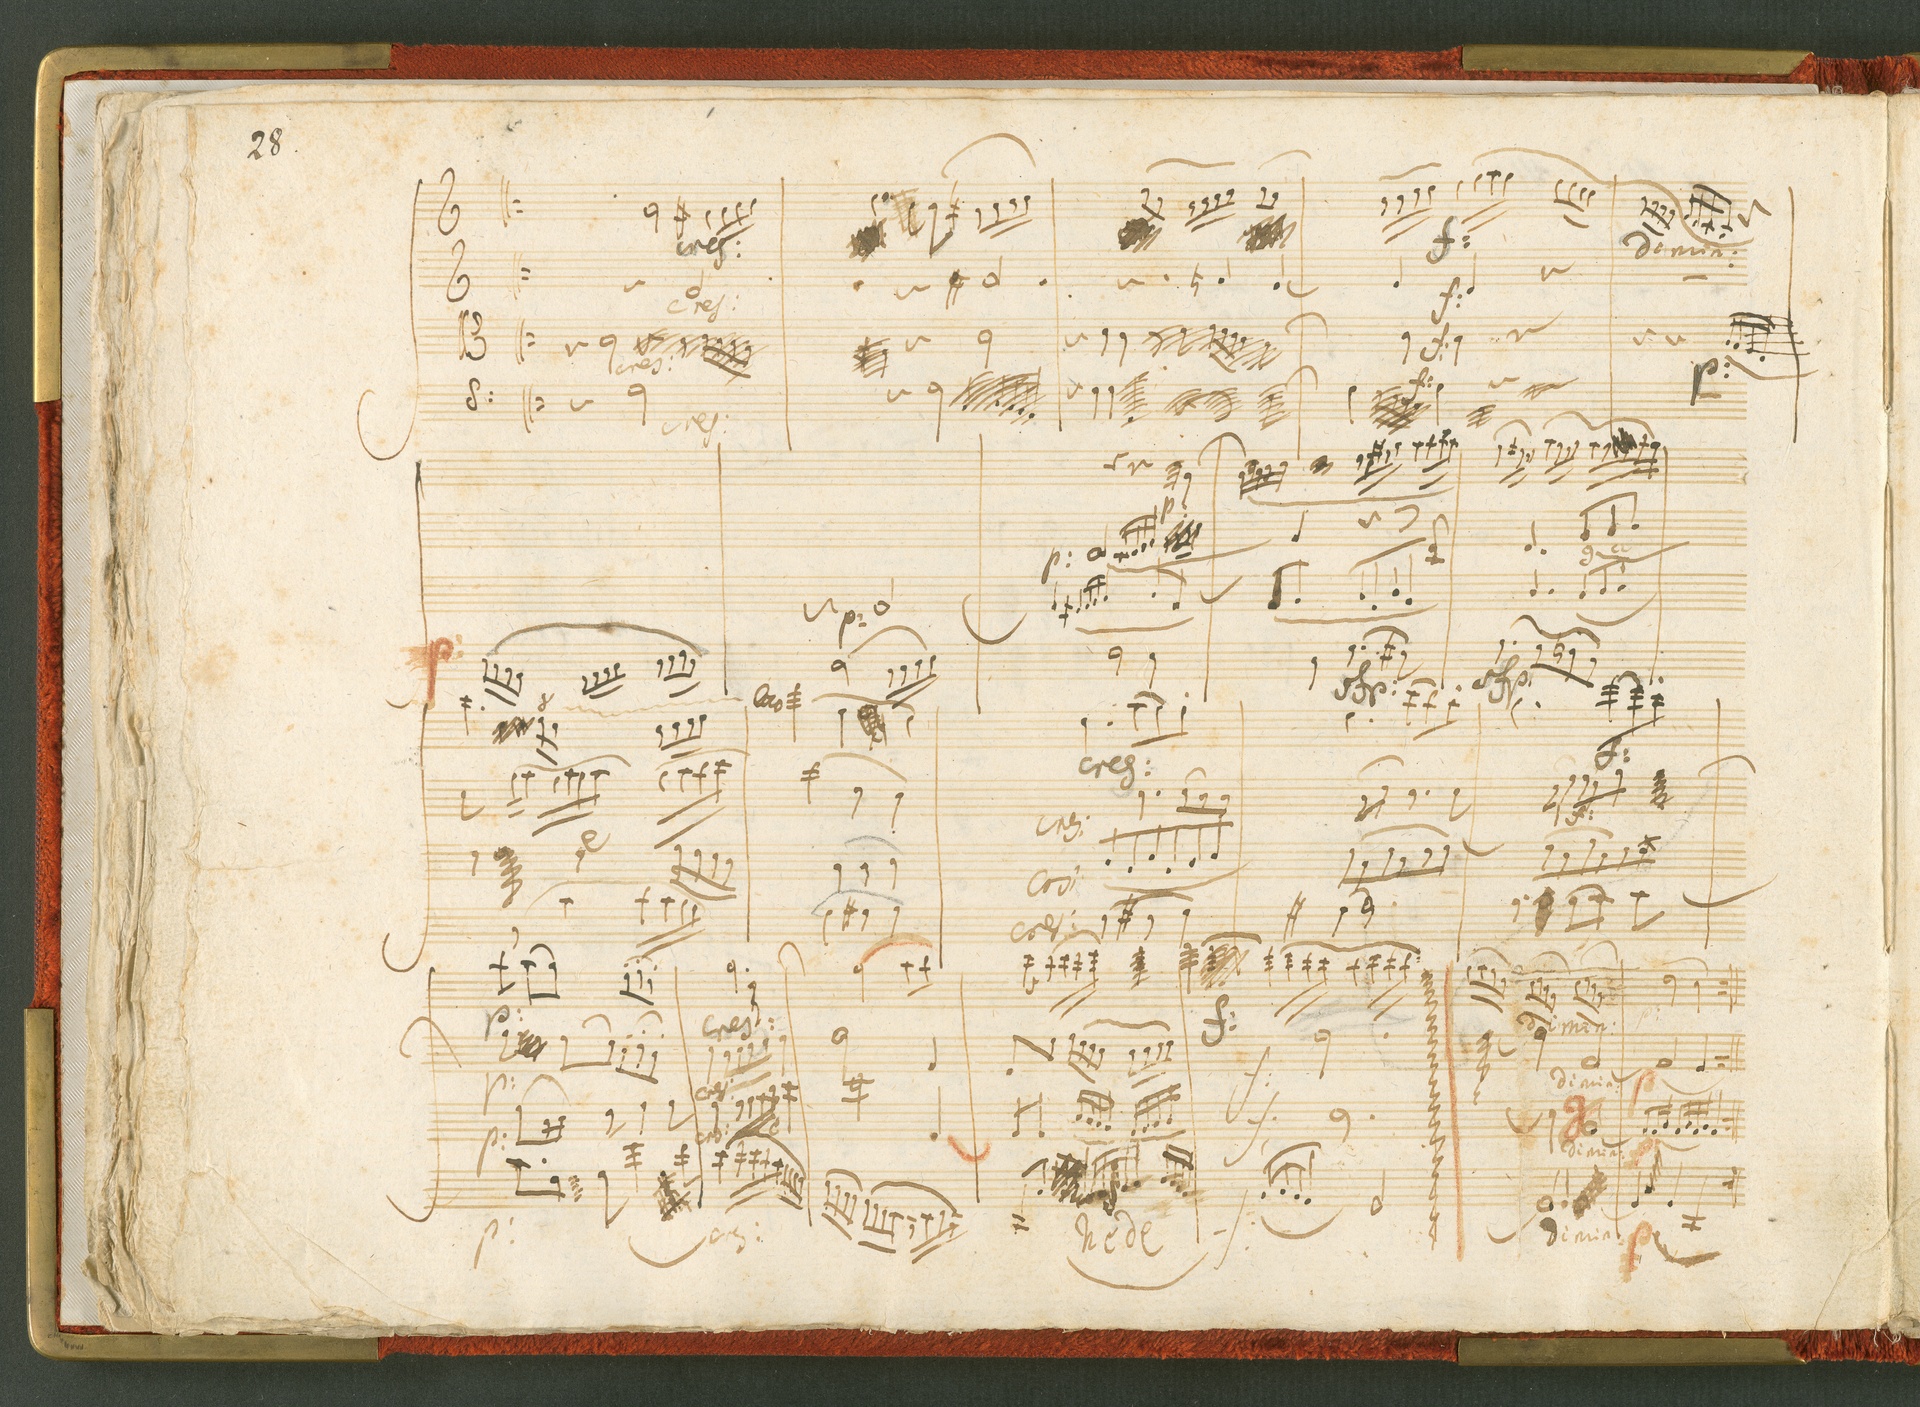 28.
cres: f: dimin:
cres: f:
cres: f: p:
cres: f:
p:
p:
p:
p:
sfp: sfp:
cres: f:
cres: f:
cres:
cres:
p: cres: f: dimin: p:
p: cres: f: dimin: p
p: cres: f: dimin: p
p: cres: dimin: p